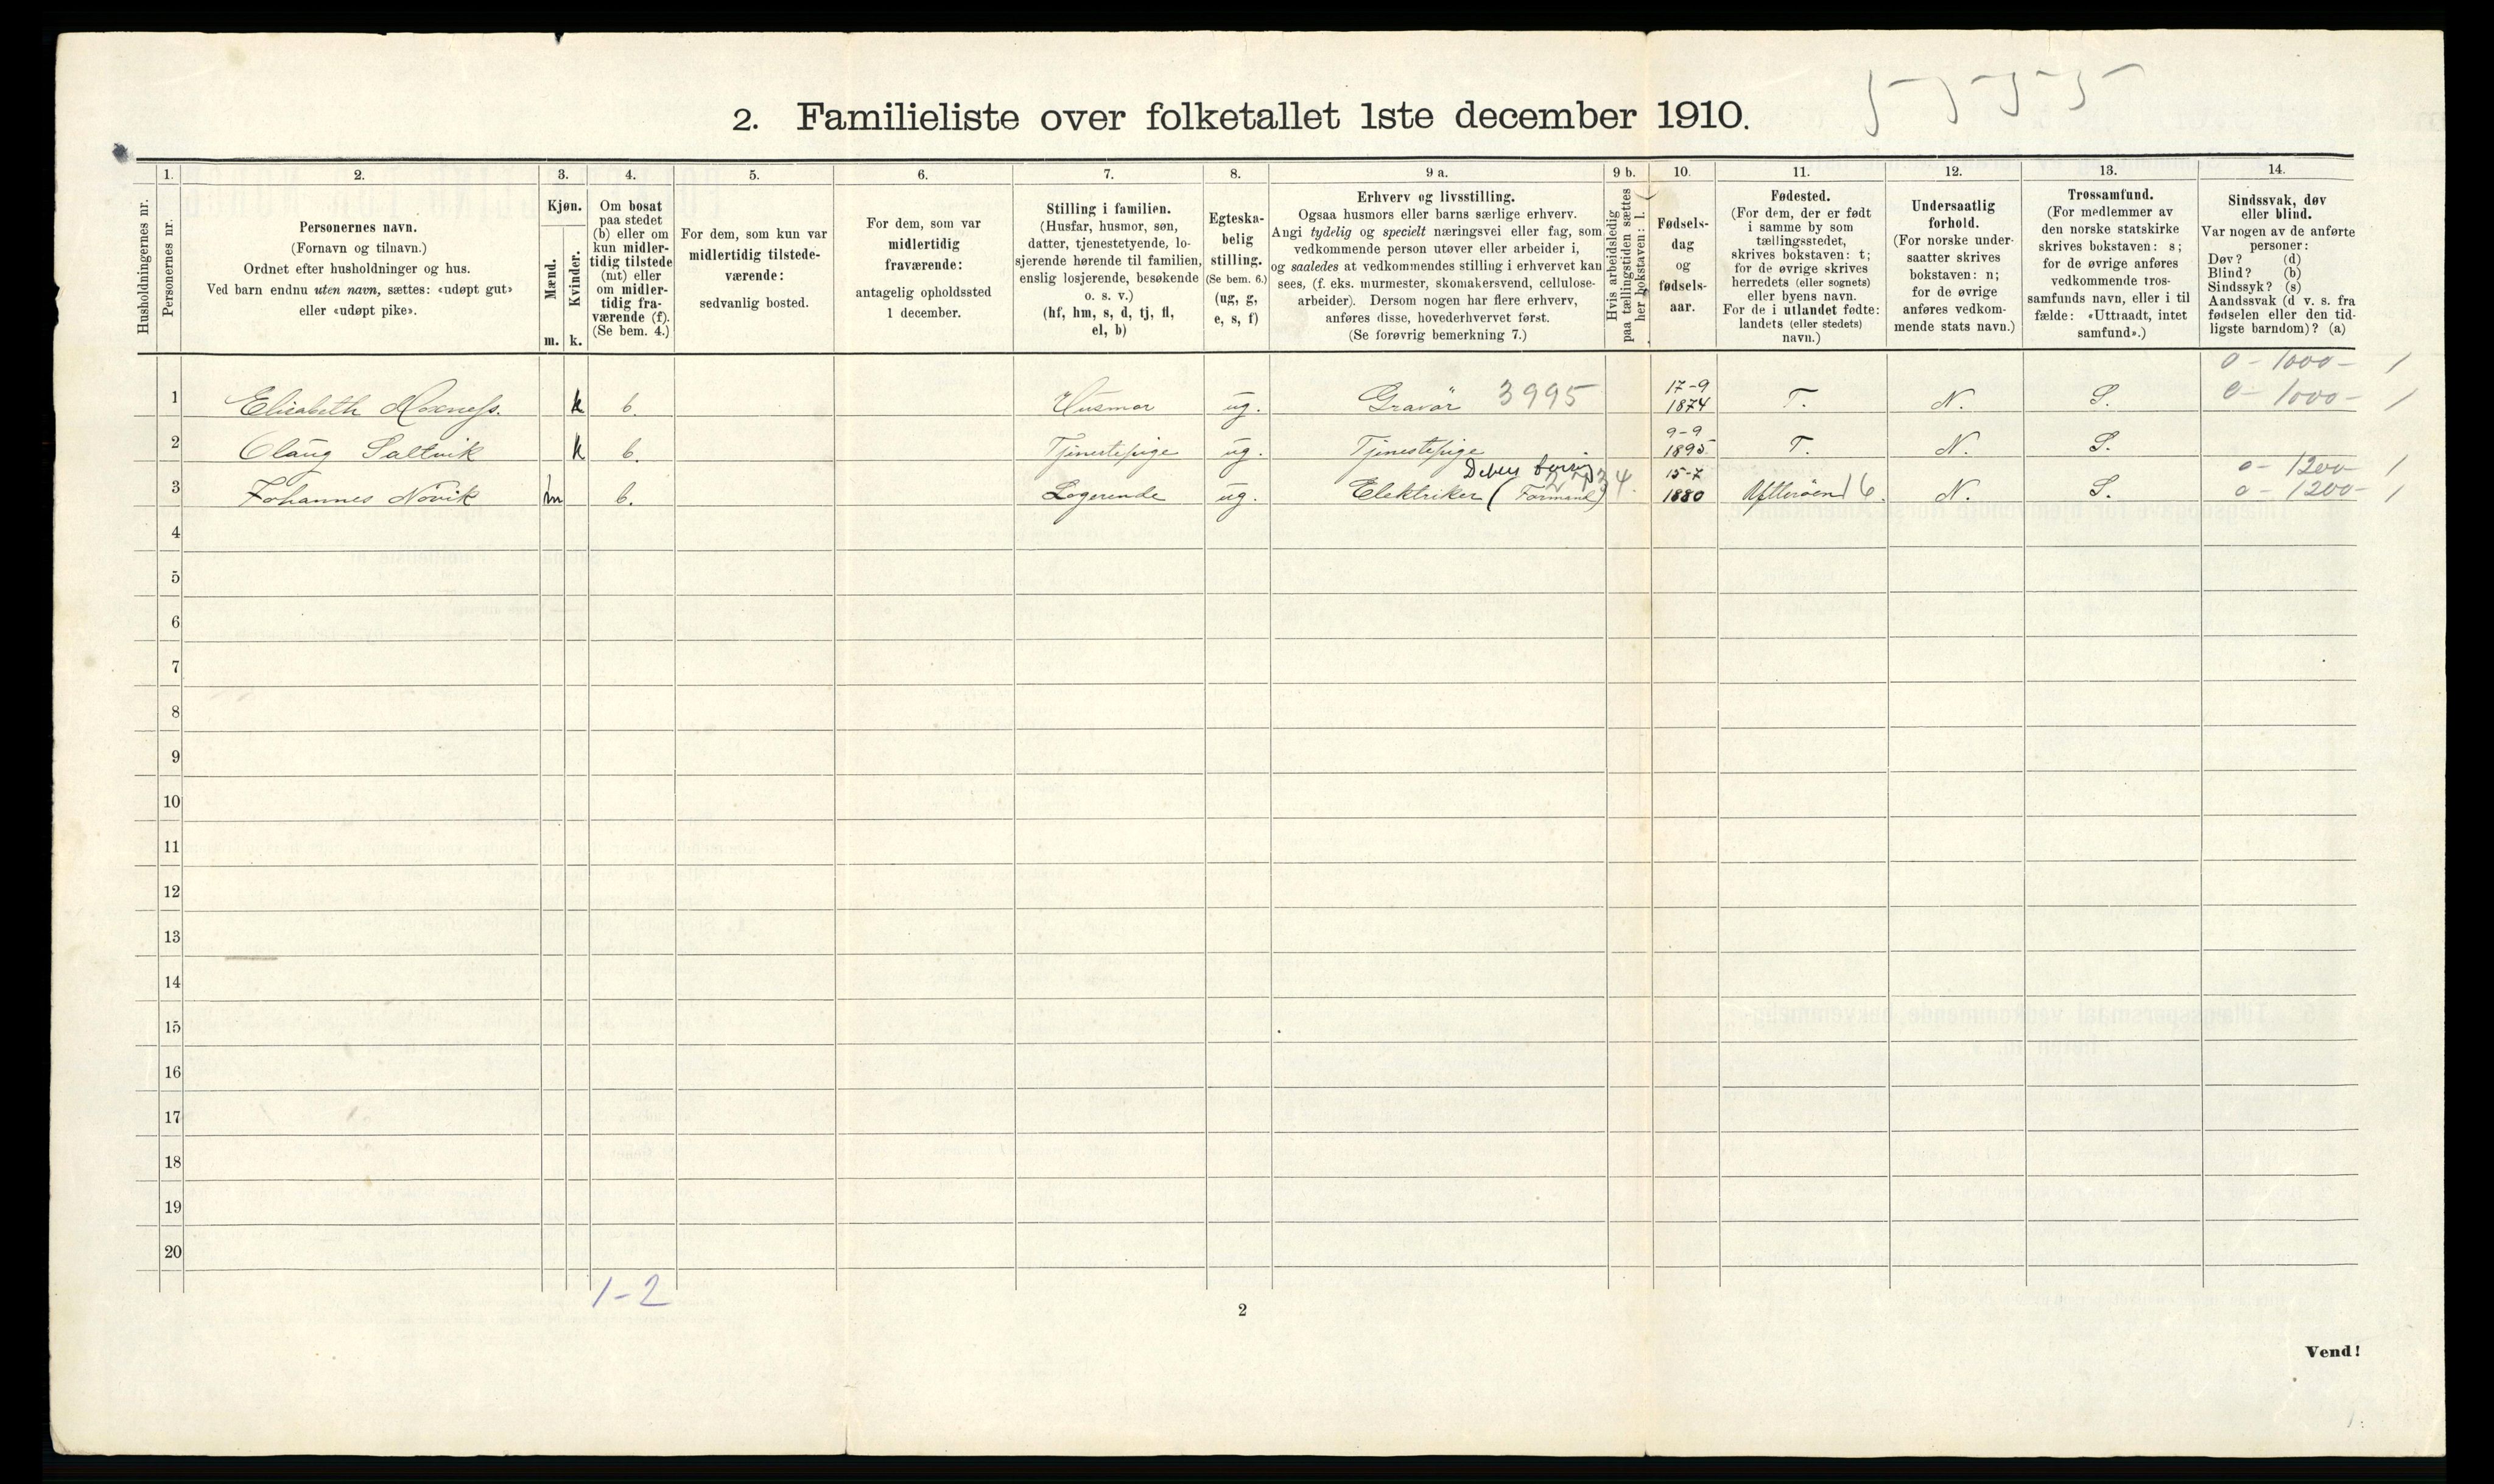 5-5-5-5
2. Familieliste over folketallet 1ste december 1910.
Husholdningernes nr.
1.
Personernes nr.
2.
Personernes navn.
(Fornavn og tilnavn.)
Ordnet efter husholdninger og hus.
Ved barn endnu uten navn, sættes: «udøpt gut»
eller «udøpt pike».
3.
Kjøn.
Mænd.
Kvinder.
m. k.
4.
Om bosat
paa stedet
(b) eller om
kun midler-
tidig tilstede
(mt) eller
om midler-
tidig fra-
værende (f).
(Se bem. 4.)
5.
For dem, som kun var
midlertidig tilstede-
værende:
sedvanlig bosted.
6.
For dem, som var
midlertidig
fraværende:
antagelig opholdssted
1 december.
7.
Stilling i familien.
(Husfar, husmor, søn,
datter, tjenestetyende, lo-
sjerende hørende til familien,
enslig losjerende, besøkende
o. s. v.)
(hf, hm, s, d, tj, fl,
el, b)
8.
Egteska-
belig
stilling.
(Se bem. 6.)
(ug, g,
e, s, f)
9 a.
Erhverv og livsstilling.
Ogsaa husmors eller barns særlige erhverv.
Angi tydelig og specielt næringsvei eller fag, som
vedkommende person utøver eller arbeider i,
og saaledes at vedkommendes stilling i erhvervet kan
sees, (f. eks. murmester, skomakersvend, cellulose-
arbeider). Dersom nogen har flere erhverv,
anføres disse, hovederhvervet først.
(Se forøvrig bemerkning 7.)
9 b.
Hvis arbeidsledig
paa tællingstiden sættes
her bokstaven: l.
10.
Fødsels-
dag
og
fødsels-
aar.
11.
Fødested.
(For dem, der er født
i samme by som
tællingsstedet,
skrives bokstaven: t;
for de øvrige skrives
herredets (eller sognets)
eller byens navn.
For de i utlandet fødte:
landets (eller stedets)
navn.)
12.
Undersaatlig
forhold.
(For norske under-
saatter skrives
bokstaven: n;
for de øvrige
anføres vedkom-
mende stats navn.)
13.
Trossamfund.
(For medlemmer av
den norske statskirke
skrives bokstaven: s;
for de øvrige anføres
vedkommende tros-
samfunds navn, eller i til
fælde: «Uttraadt, intet
samfund».)
14.
Sindssvak, døv
eller blind.
Var nogen av de anførte
personer:
Døv? (d)
Blind? (b)
Sindssyk? (s)
Aandssvak (d v. s. fra
fødselen eller den tid-
ligste barndom)? (a)
0 - 1000 - 1
17-9
1 Elisabeth Moxness. k b. Husmor ug. Gravör 3995 1874 T. N. S. 0 - 1000 - 1
9-9
2 Olaug Saltvik k b. Tjenestepige ug. Tjenestepige 1895 T. N. S.
15-7 0 - 1200 1
3 Johannes Növik m b. Logerende ug. Elektriker (Formand) 1880 Ytterøen 16. N. S. 0 - 1200 - 1
4
5
6
7
8
9
10
11
12
13
14
15
16
17
18
19
20
1-2
2
Vend!